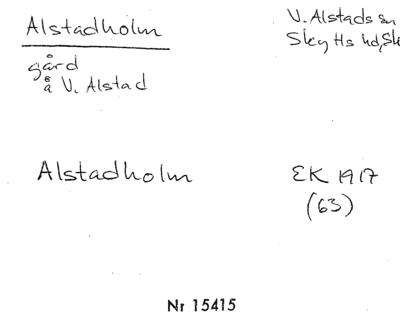 Alstadholm
V. Alstads sn
gård
Skytts hd, Sk
å V. Alstad
Alstadholm
EK 1917
(63)
Nr 15415